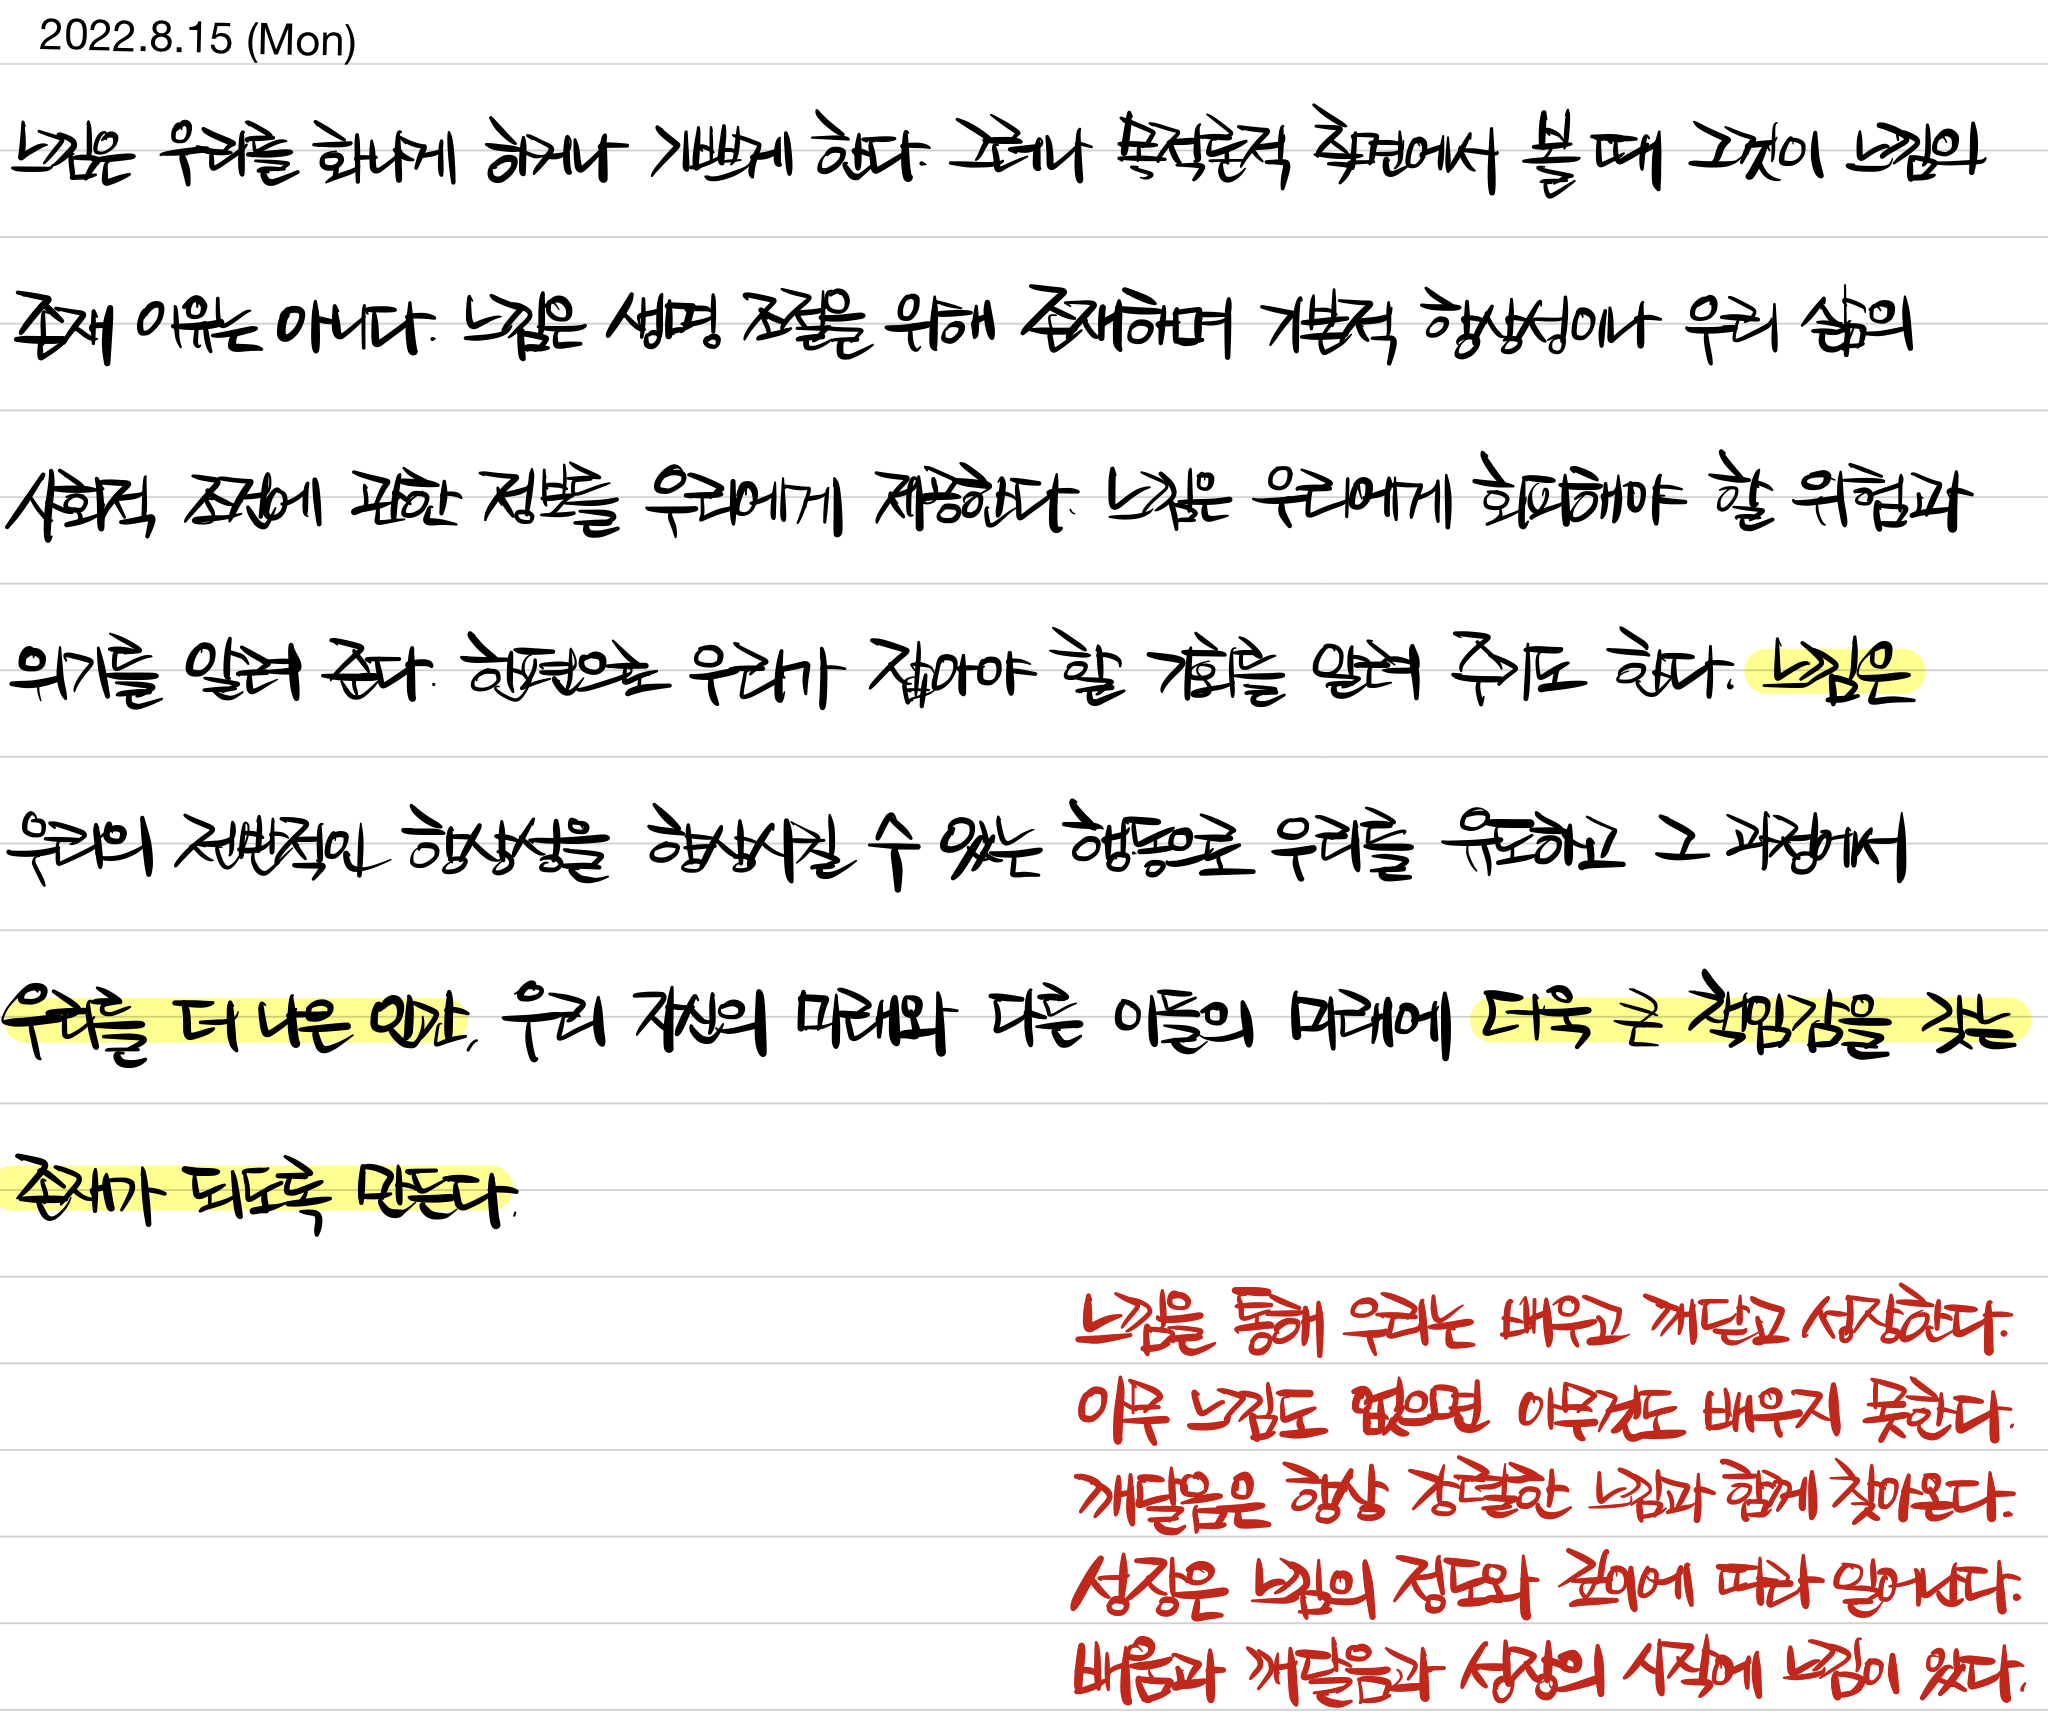 2022.8.15 (Mon)
느낌은 우리를 화나게 하거나 기쁘게 한다. 그러나 목적론적 측면에서 볼 때 그것이 느낌의
존재 이유는 아니다. 느낌은 생명 조절을 위해 존재하며 기본적 항상성이나 우리 삶의
사회적 조건에 관한 정보를 우리에게 제공한다. 느낌은 우리에게 회피해야 할 위험과
위기를 알려 준다. 한편으로 우리가 잡아야 할 기회를 알려 주기도 한다. 느낌은
우리의 전반적인 항상성을 향상시킬 수 있는 행동으로 우리를 유도하고 그 과정에서
우리를 더 나은 인간, 우리 자신의 미래와 다른 이들의 미래에 더욱 큰 책임감을 갖는
존재가 되도록 만든다.
느낌을 통해 우리는 배우고 깨닫고 성장한다.
아무 느낌도 없으면 아무것도 배우지 못한다.
깨달음은 항상 강렬한 느낌과 함께 찾아온다.
성장은 느낌의 정도와 깊이에 따라 일어난다.
배움과 깨달음과 성장의 시작에 느낌이 있다.